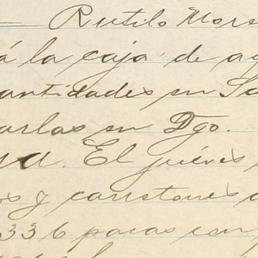 — Rutilo Mor
á la caja de a
antidades en S
arlas en Dgo.
El juéves
s y carretones
336 pacas con